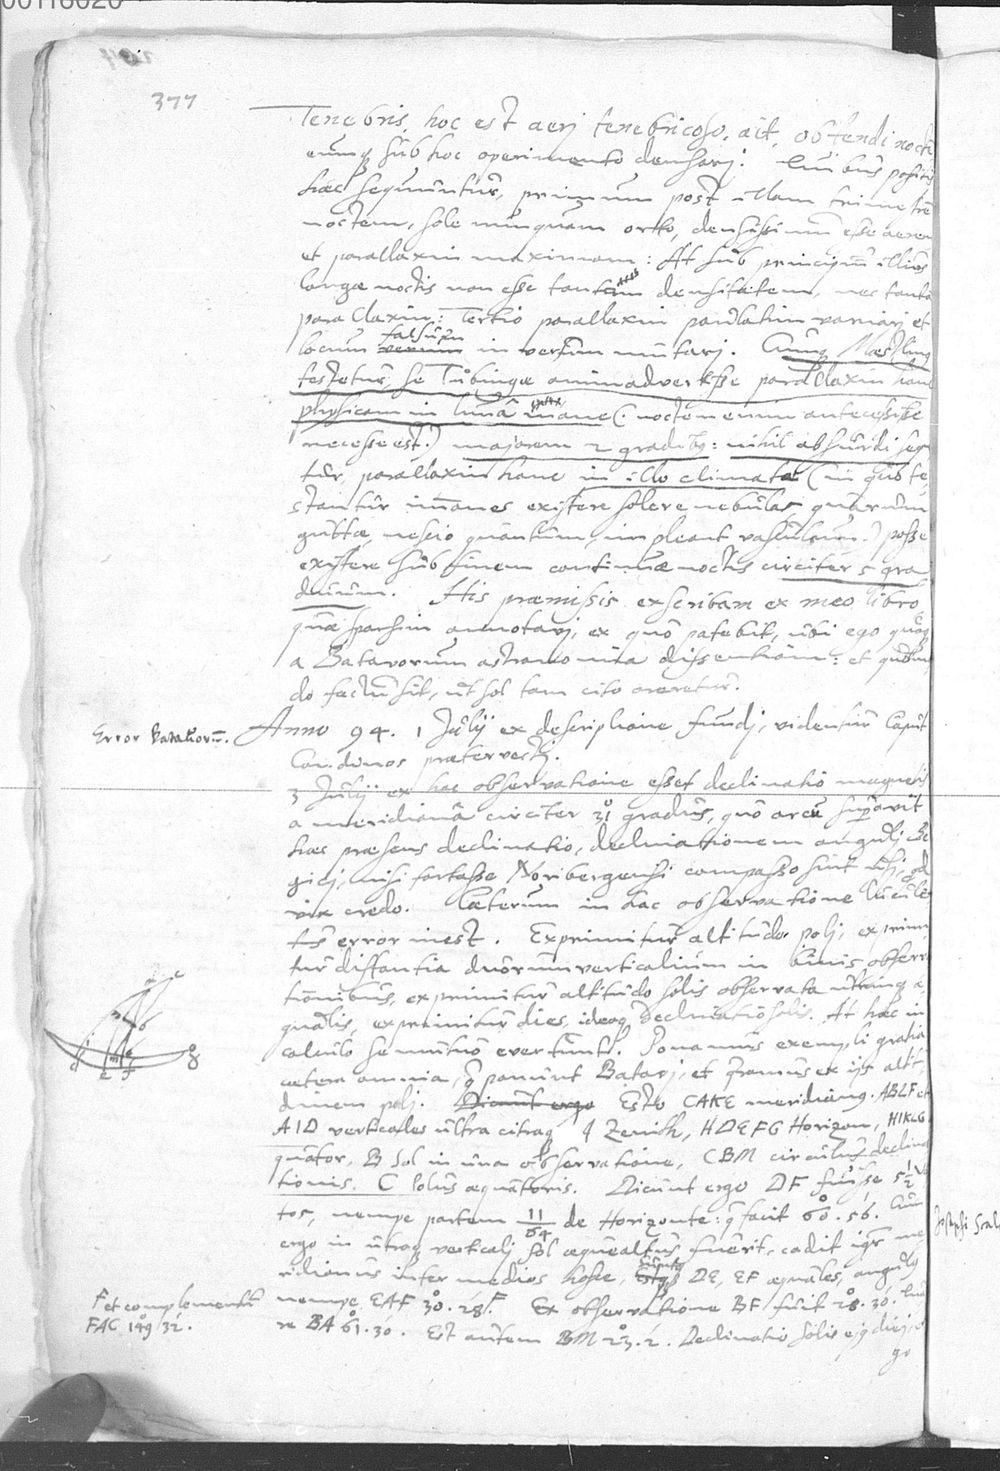 00118020
377
Tenebris, hoc est aeri tenebricoso, ait, obtendi noctē
eumq̃ sub hoc operimento densari. Quibus positis
haec sequuntur, primum post illam trimestrē
noctem, sole nunquam orto, densissimum esse aerem
et parallaxin maximam: At sub principiũ illius
longae noctis non esse tantam densitatem, nec tantā
parallaxin: Tertio parallaxin paulatim variari et
locum falsum in versum mutari. Cumq̃ Maestlinus
testetur, se Tubingae animadvertisse parallaxin hanc
physicam in luna mane (noctem enim antecessisse
necesse est.) majorem 2 gradibus: nihil absurdi seq
tur, parallaxin hanc in illo climate (in quo te
stantur immanes existere solere nebulas, quarum
guttae, nescio quantum, impleant vasculum.) posse
existere sub finem continuae noctis circiter 5 gra
duum. His praemissis exscribam ex meo libro
quae sparsim annotavi, ex quo patebit, ubi ego quoq̃
a Batavorum astronomia dissentiam: et quomo
do factum sit, ut sol tam cito oreretur.
Error Batavorũ.
Anno 94. 1 Julij ex descriptione fundi, videntur Caput
Can.dinos praetervecti.
3 Julij ex hac observatione esset declinatio magnetis
a meridiana circiter 31 gradus, quo arcu superavit
haec praesens declinatio, declinationem anguli
gici, nisi fortasse Noribergensi compasso sint usi, qd
vix credo. Caeterum in hac observatione luculen
tus error inest. Exprimitur altitudo poli, exprimi
tur distantia duorum verticalium in binis observa
tionibus, exprimitur altitudo solis observata utrinq̃ ae
qualis, exprimitur dies, ideoq̃ declinatio solis. At haec in
calculo se mutuo evertunt. Ponamus exempli gratia
caetera omnia, q̃ ponunt Batavi, et quaeramus ex ijs altit
dinem poli. Dicunt ergo Esto CAKE meridianq. ABLF et
AID verticales ultra citraq̃ A Zenith, HDEFG Horizon, HIKLG
quator, B Sol in una observatione, CBM circulus declina
tionis. C Polus aequatoris. Dicunt ergo DF fuisse 5½
tos, nempe partem 11/64 de Horizonte: q̃ facit 60. 56. Cum
ergo in utroq̃ verticali Sol aequealtus fuerit, cadit igr me
ridianus inter medios hosce, suntq̃ DE, EF aequales, anguli
nempe EAF 30. 28. F Ex observatione BF fuit 28. 30. qua
re BA 61. 30. Est autem BM 23. 2. Declinatio solis ejq̃ diei,
go
F et complementũ
FAC 149 32.